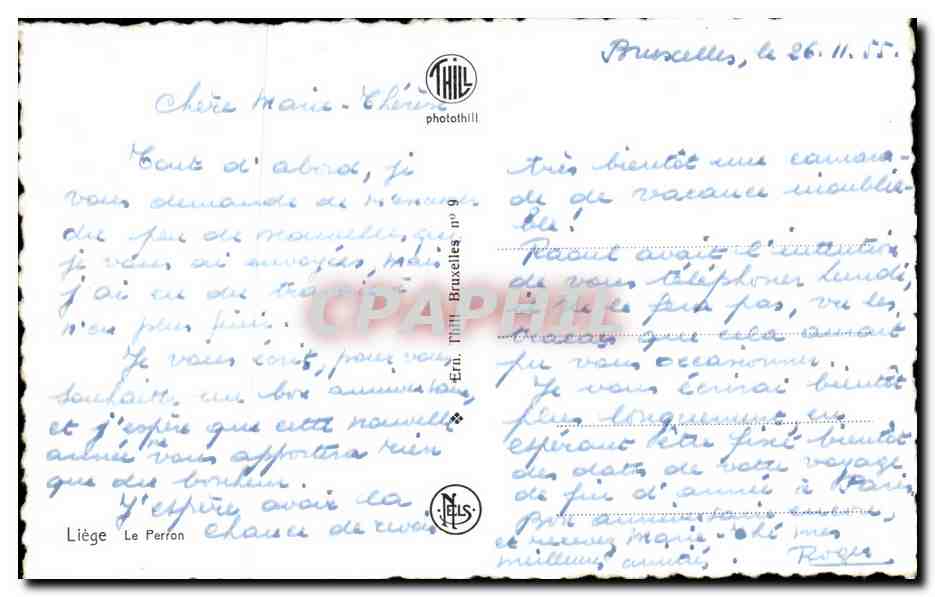 Bruxelles, le 26.11.55.
Chère Marie-Thérèse
Tout d'abord, je
vous demande de m'excuser
du peu de nouvelles que
je vous ai envoyées, mais
j'ai eu du travail à
n'en plus finir.
Je vous écrit, pour vous
souhaiter un bon anniversaire,
et j'espère que cette nouvelle
année vous apportera rien
que du bonheur.
J'espère avoir la
chance de revoir
très bientôt une camara-
de de vacance inoublia-
ble!
Raoul avait l'intention
de vous téléphoner Lundi,
il ne le fera pas, vu les
tracas que cela aurait
pu vous occasionner.
Je vous écrirai bientôt
plus longuement, en
espérant être fixé bientôt
des dates de votre voyage
de fin d'année à Paris.
Bon anniversaire encore,
et recevez Marie-Thé mes
meilleures amitiés.
Roger
THILL
photothill
Ern. Thill Bruxelles n° 9
NELS
Liège Le Perron
CPAPHIL